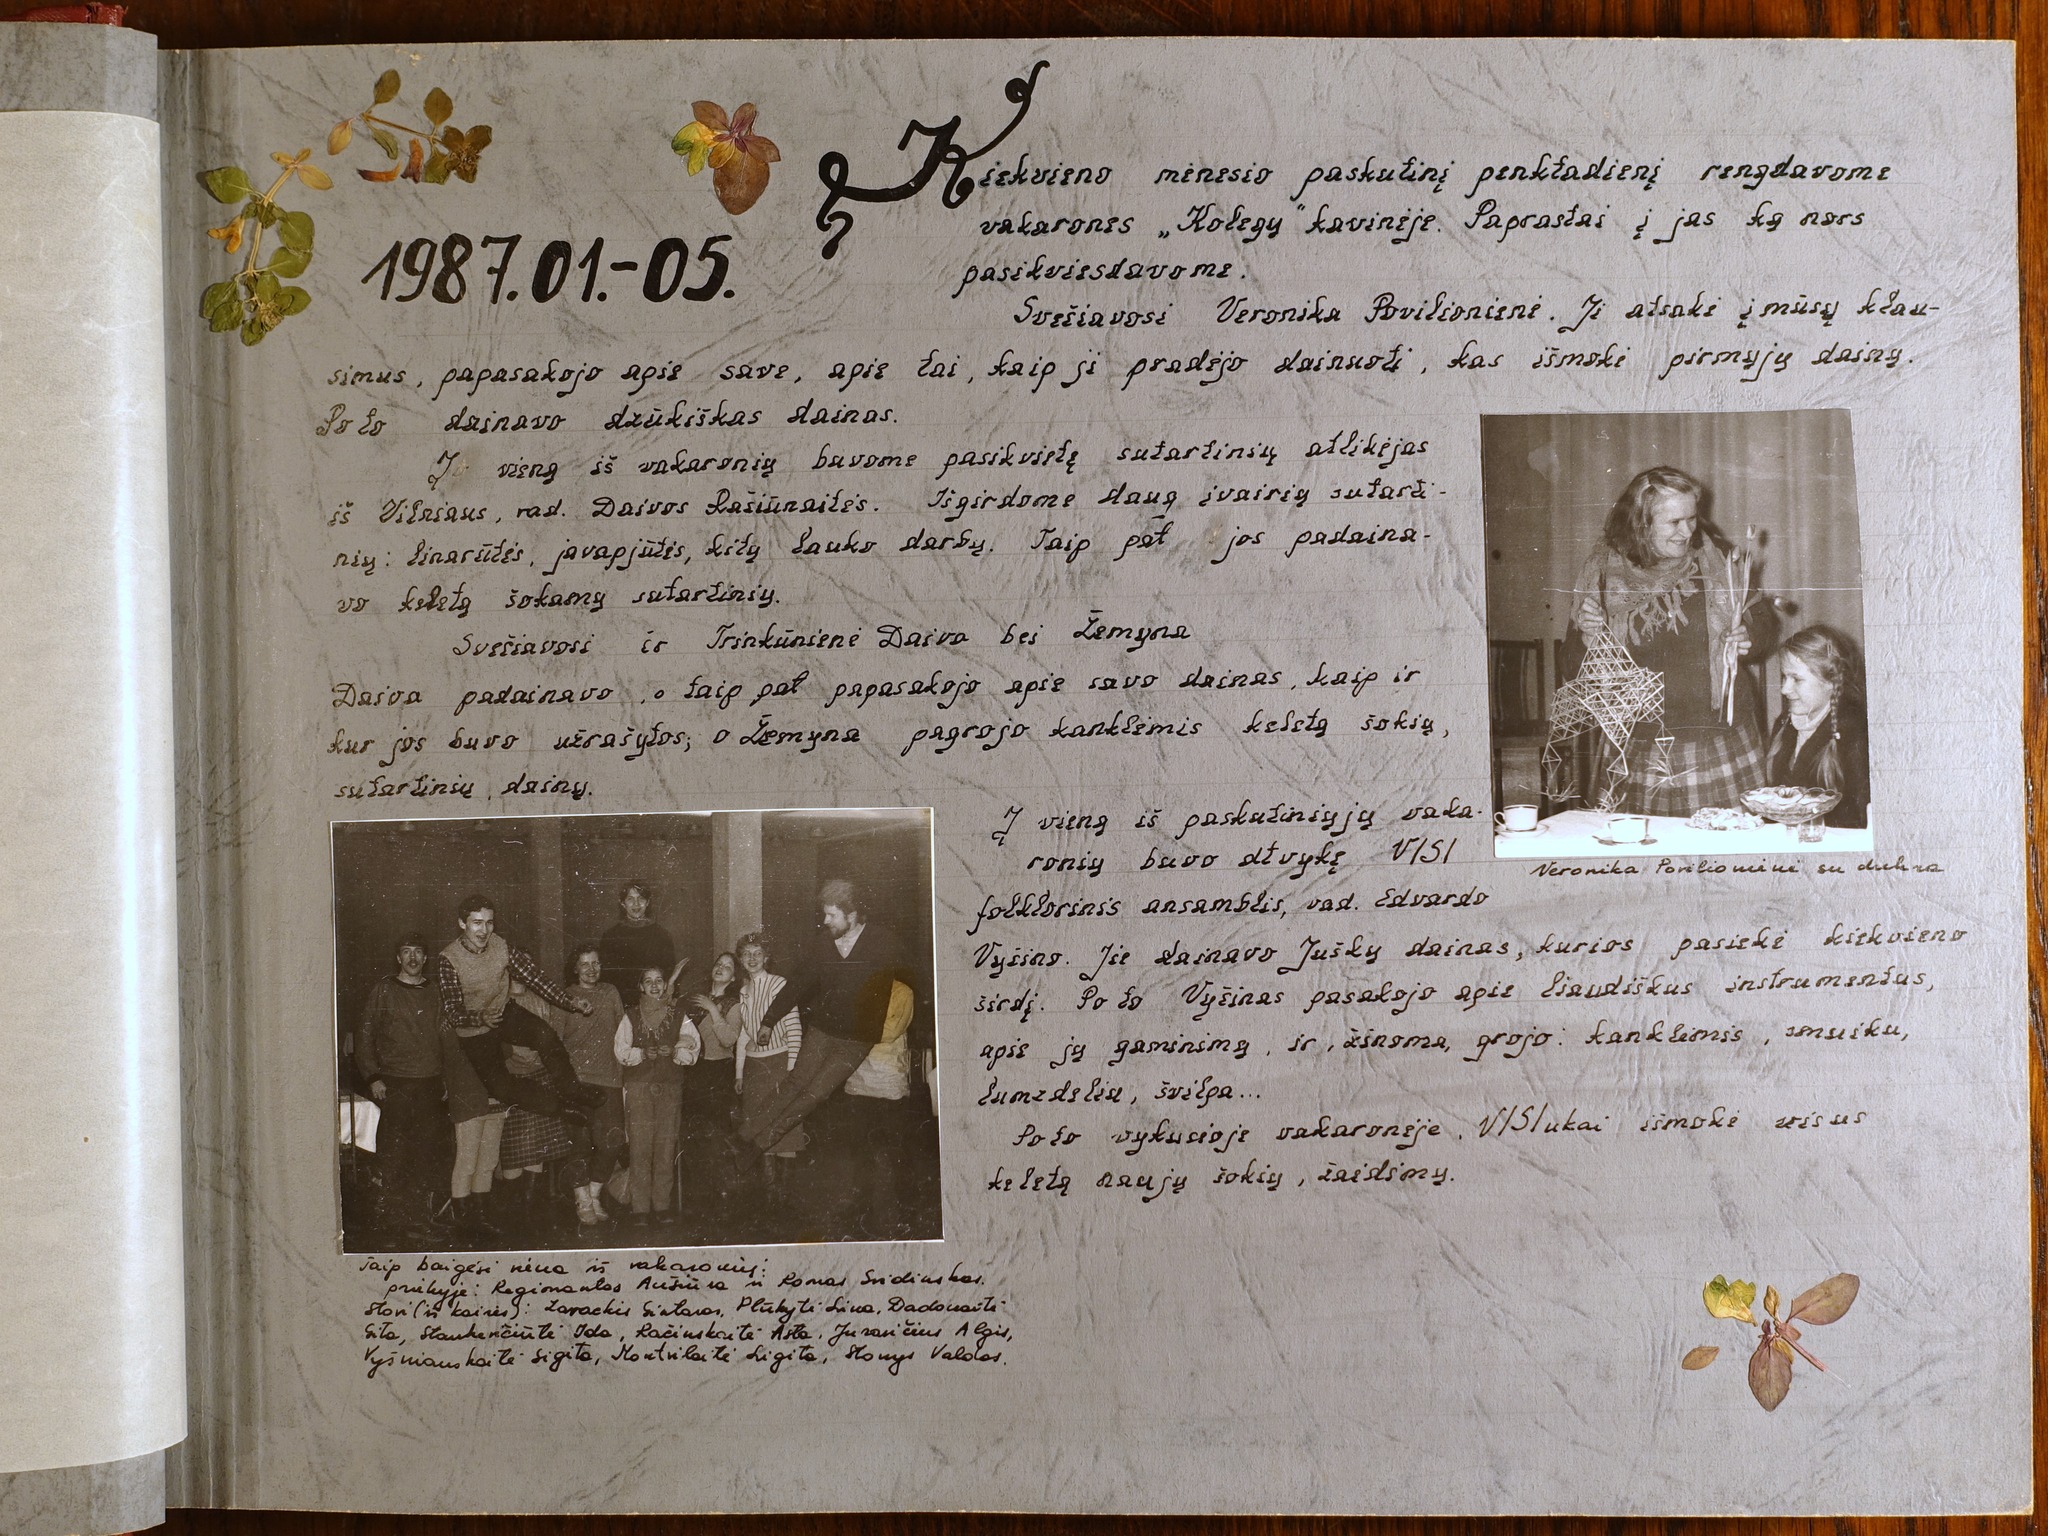 1987.01.-05.
Kiekvieno mėnesio paskutinį penktadienį rengdavome
vakarones „Kolegų" kavinėje. Paprastai į jas ką nors
pasikviesdavome.
Svečiavosi Veronika Povilionienė. Ji atsakė į mūsų klau-
simus, papasakojo apie save, apie tai, kaip ji pradėjo dainuoti, kas išmokė pirmųjų dainų.
Po to dainavo dzūkiškas dainas.
Į vieną iš vakaronių buvome pasikvietę sutartinių atlikėjas
iš Vilniaus, vad. Daivos Račiūnaitės. Išgirdome daug įvairių sutarti-
nių: linarūtės, javapjūtės, kitų lauko darbų. Taip pat jos padaina-
vo keletą šokamų sutartinių.
Svečiavosi ir Trinkūnienė Daiva bei Žemyna
Daiva padainavo, o taip pat papasakojo apie savo dainas, kaip ir
kur jos buvo užrašytos; o Žemyna pagrojo kanklėmis keletą šokių,
sutartinių, dainų.
Į vieną iš paskutiniųjų vaka-
ronių buvo atvykę VISI
folklorinis ansamblis, vad. Edvardo
Vyčino. Jie dainavo Juškų dainas, kurios pasiekė kiekvieno
širdį. Po to Vyčinas pasakojo apie liaudiškus instrumentus,
apie jų gaminimą, ir, žinoma, grojo: kanklėmis, smuiku,
lumzdeliu, švilpa...
Po to vykusioje vakaronėje, VISIukai išmokė visus
keletą naujų šokių, žaidimų.
Veronika Povilionienė su dukra
Taip baigėsi viena iš vakaronių:
priekyje: Regimantas Aušiūra ir Romas Svidinskas.
Stovi (iš kairės): Zavackis Gintaras, Plūkytė Lina, Dadonaitė
Gita, Stankevičiūtė Ida, Račinskaitė Asta, Juravičius Algis,
Vyšniauskaitė Sigita, Montvilaitė Ligita, Stonys Valdas.